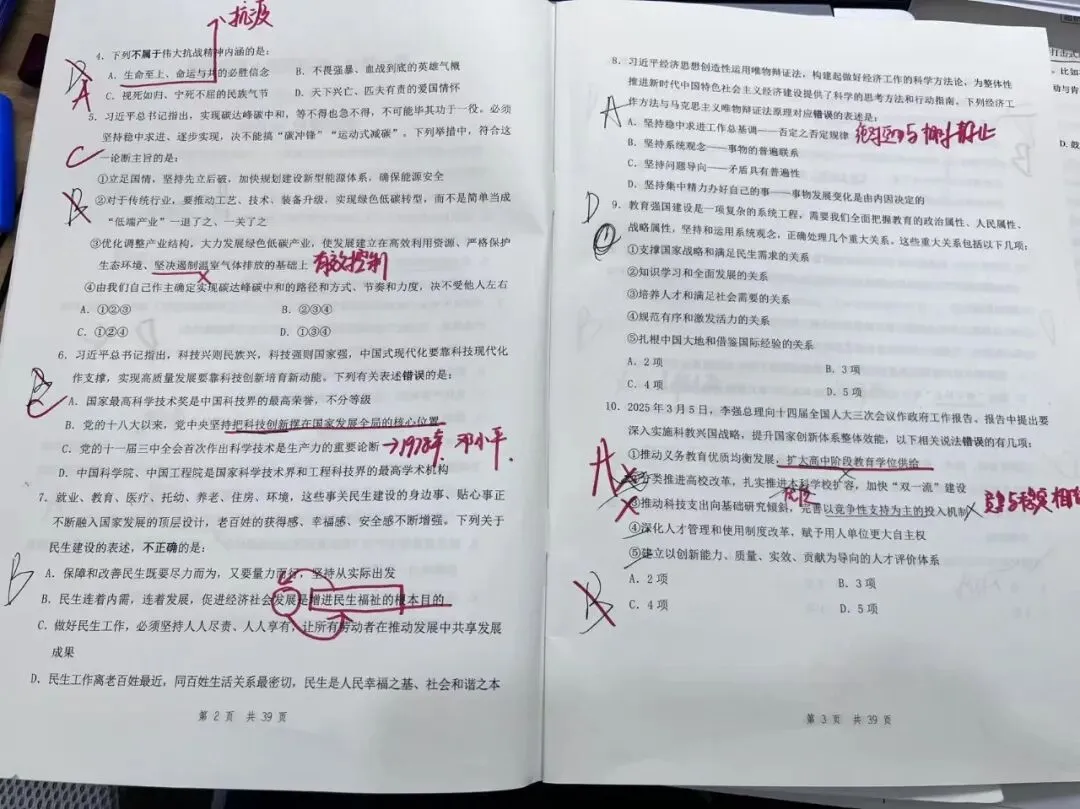 抗疫
4. 下列不属于伟大抗战精神内涵的是：
A. 生命至上、命运与共的必胜信念
B. 不畏强暴、血战到底的英雄气概
A
C. 视死如归、宁死不屈的民族气节
D. 天下兴亡、匹夫有责的爱国情怀
5. 习近平总书记指出，实现碳达峰碳中和，等不得也急不得，不可能毕其功于一役。必须
坚持稳中求进、逐步实现，决不能搞“碳冲锋”“运动式减碳”。下列举措中，符合这
C
一论断主旨的是：
①立足国情，坚持先立后破，加快规划建设新型能源体系，确保能源安全
②对于传统行业，要推动工艺、技术、装备升级，实现绿色低碳转型，而不是简单当成
“低端产业”一退了之、一关了之
③优化调整产业结构，大力发展绿色低碳产业，使发展建立在高效利用资源、严格保护
生态环境、坚决遏制温室气体排放的基础上 有效控制
④由我们自己作主确定实现碳达峰碳中和的路径和方式、节奏和力度，决不受他人左右
A. ①②③
B. ②③④
C. ①②④
D. ①③④
6. 习近平总书记指出，科技兴则民族兴，科技强则国家强，中国式现代化要靠科技现代化
作支撑，实现高质量发展要靠科技创新培育新动能。下列有关表述错误的是：
A. 国家最高科学技术奖是中国科技界的最高荣誉，不分等级
B. 党的十八大以来，党中央坚持把科技创新摆在国家发展全局的核心位置
C. 党的十一届三中全会首次作出科学技术是生产力的重要论断 →1978年 邓小平.
D. 中国科学院、中国工程院是国家科学技术界和工程科技界的最高学术机构
7. 就业、教育、医疗、托幼、养老、住房、环境，这些事关民生建设的身边事、贴心事正
不断融入国家发展的顶层设计，老百姓的获得感、幸福感、安全感不断增强。下列关于
民生建设的表述，不正确的是：
B
A. 保障和改善民生既要尽力而为，又要量力而行，坚持从实际出发
B. 民生连着内需，连着发展，促进经济社会发展是增进民生福祉的根本目的
C. 做好民生工作，必须坚持人人尽责、人人享有，让所有劳动者在推动发展中共享发展
成果
D. 民生工作离老百姓最近，同百姓生活关系最密切，民生是人民幸福之基、社会和谐之本
第 2 页 共 39 页
8. 习近平经济思想创造性运用唯物辩证法，构建起做好经济工作的科学方法论，为整体性
推进新时代中国特色社会主义经济建设提供了科学的思考方法和行动指南。下列经济工
A
作方法与马克思主义唯物辩证法原理对应错误的表述是：
A. 坚持稳中求进工作总基调——否定之否定规律 绝对运动与相对静止
B. 坚持系统观念——事物的普遍联系
C. 坚持问题导向——矛盾具有普遍性
D. 坚持集中精力办好自己的事——事物发展变化是由内因决定的
D
9. 教育强国建设是一项复杂的系统工程，需要我们全面把握教育的政治属性、人民属性、
战略属性，坚持和运用系统观念，正确处理几个重大关系。这些重大关系包括以下几项：
①支撑国家战略和满足民生需求的关系
②知识学习和全面发展的关系
③培养人才和满足社会需要的关系
④规范有序和激发活力的关系
⑤扎根中国大地和借鉴国际经验的关系
A. 2 项
B. 3 项
C. 4 项
D. 5 项
10. 2025 年 3 月 5 日，李强总理向十四届全国人大三次会议作政府工作报告。报告中提出要
深入实施科教兴国战略，提升国家创新体系整体效能，以下相关说法错误的有几项：
A
①推动义务教育优质均衡发展，扩大高中阶段教育学位供给
②分类推进高校改革，扎实推进本科学校扩容，加快“双一流”建设
③推动科技支出向基础研究倾斜，完善以竞争性支持为主的投入机制
④深化人才管理和使用制度改革，赋予用人单位更大自主权
⑤建立以创新能力、质量、实效、贡献为导向的人才评价体系
A. 2 项
B. 3 项
C. 4 项
D. 5 项
第 3 页 共 39 页